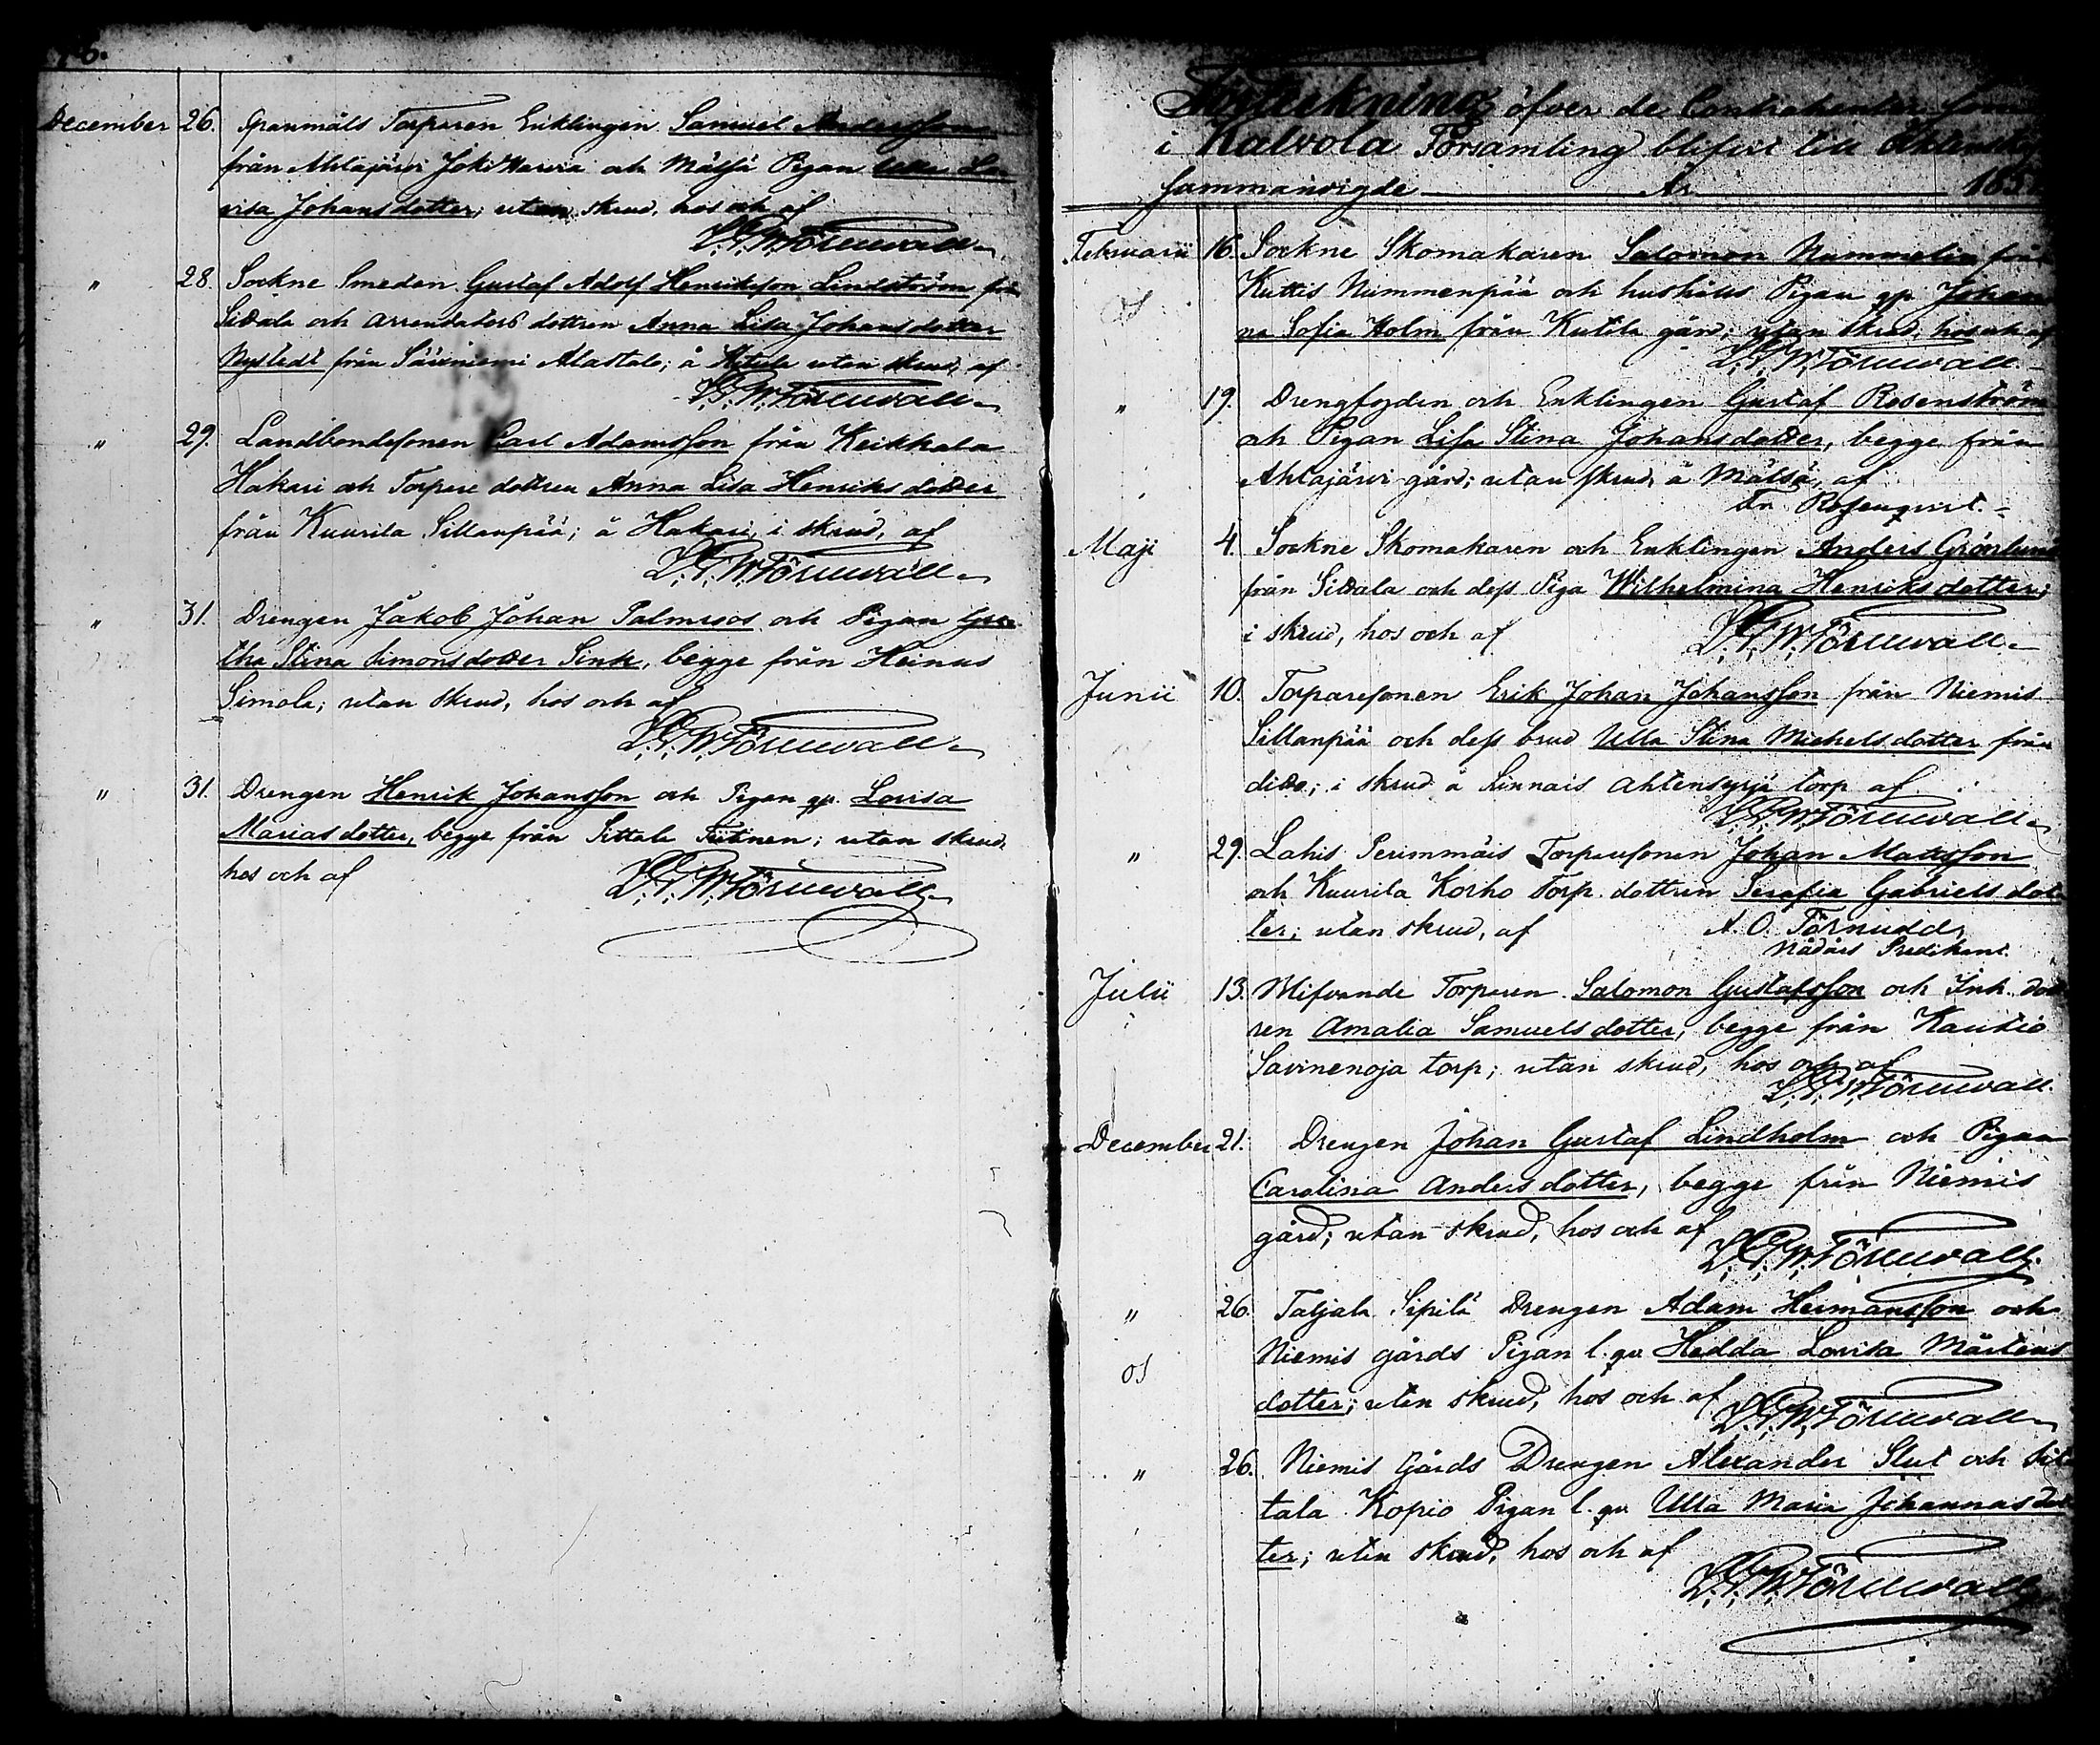 76.
December 26. Spanmåls Torparen Enklingen Samuel Andersson
från Ahlajärvi Joki Harvia och Mälsä Pigan Ulla Lo-
visa Johansdotter; utan skrud, hos och af
L. G. W. Törnwall
" 28. Sockne Smeden Gustaf Adolf Henriksson Lindström från
Sittala och arrendators dottren Anna Lisa Johansdotter
Nystedt från Sääxniemi Alastalo; å utan skrud, af
L. G. W. Törnwall
" 29. Landbondesonen Carl Adamsson från Keikkala
Hakari och Torpare dottren Anna Lisa Henriksdotter
från Kuurila Sillanpää; å Hakari, i skrud, af
L. G. W. Törnwall
" 31. Drengen Jakob Johan Palmroos och Pigan Gre-
tha Stina Simonsdotter Sink, begge från Heinus
Simola; utan skrud, hos och af
L. G. W. Törnwall
" 31. Drengen Henrik Johansson och Pigan qp. Lovisa
Mariasdotter, begge från Sittala; utan skrud,
hos och af L. G. W. Törnwall
Förteckning öfver de Contrahenter som
i Kalvola Församling blifvit till Äktenskap
sammanvigde År 185
Februarii 16. Sockne Skomakaren Salomon Nummelin från
Kuttis Nummenpää och hushålls Pigan qp. Johan-
na Sofia Holm från Kutila gård; utan skrud, hos och af
L. G. W. Törnwall
" 19. Drengfogden och Enklingen Gustaf Rosenström
och Pigan Lisa Stina Johansdotter, begge från
Ahlajärvi gård; utan skrud, å Mälsä, af
Fr. Rosenqvist.
Maji 4. Sockne Skomakaren och Enklingen Anders Grönlund
från Sittala och dess Piga Wilhelmina Henriksdotter;
i skrud, hos och af L. G. W. Törnwall
Junii 10. Torparesonen Erik Johan Johansson från Niemis
Sillanpää och dess brud Ulla Stina Michelsdotter från
ditto; i skrud å Linnais Ahtensyrjä torp af
L. G. W. Törnwall
" 29. Lahis Perimmäis Torparesonen Johan Mattsson
och Kuurila Korho Torp. dottren Serafia Gabrielsdot-
ter; utan skrud, af A. O. Törnudd,
Nådårs Predikant.
Julii 13. Blifvande Torparen Salomon Gustafsson och Inh. dott-
ren Amalia Samuelsdotter, begge från Kautio
Savinenoja torp; utan skrud, hos och af
L. G. W. Törnwall
December 21. Drengen Johan Gustaf Lindholm och Pigan
Carolina Andersdotter, begge från Niemis
gård; utan skrud, hos och af
L. G. W. Törnwall
" 26. Taljala Sipilä Drengen Adam Hermansson och
Niemis gårds Pigan l. qv. Hedda Lovisa Mårtens-
dotter; utan skrud, hos och af
L. G. W. Törnwall
" 26. Niemis Gårds Drengen Alexander Slut och Sit-
tala Kopio Pigan l. qv. Ulla Maria Johannasdot-
ter; utan skrud, hos och af
L. G. W. Törnwall